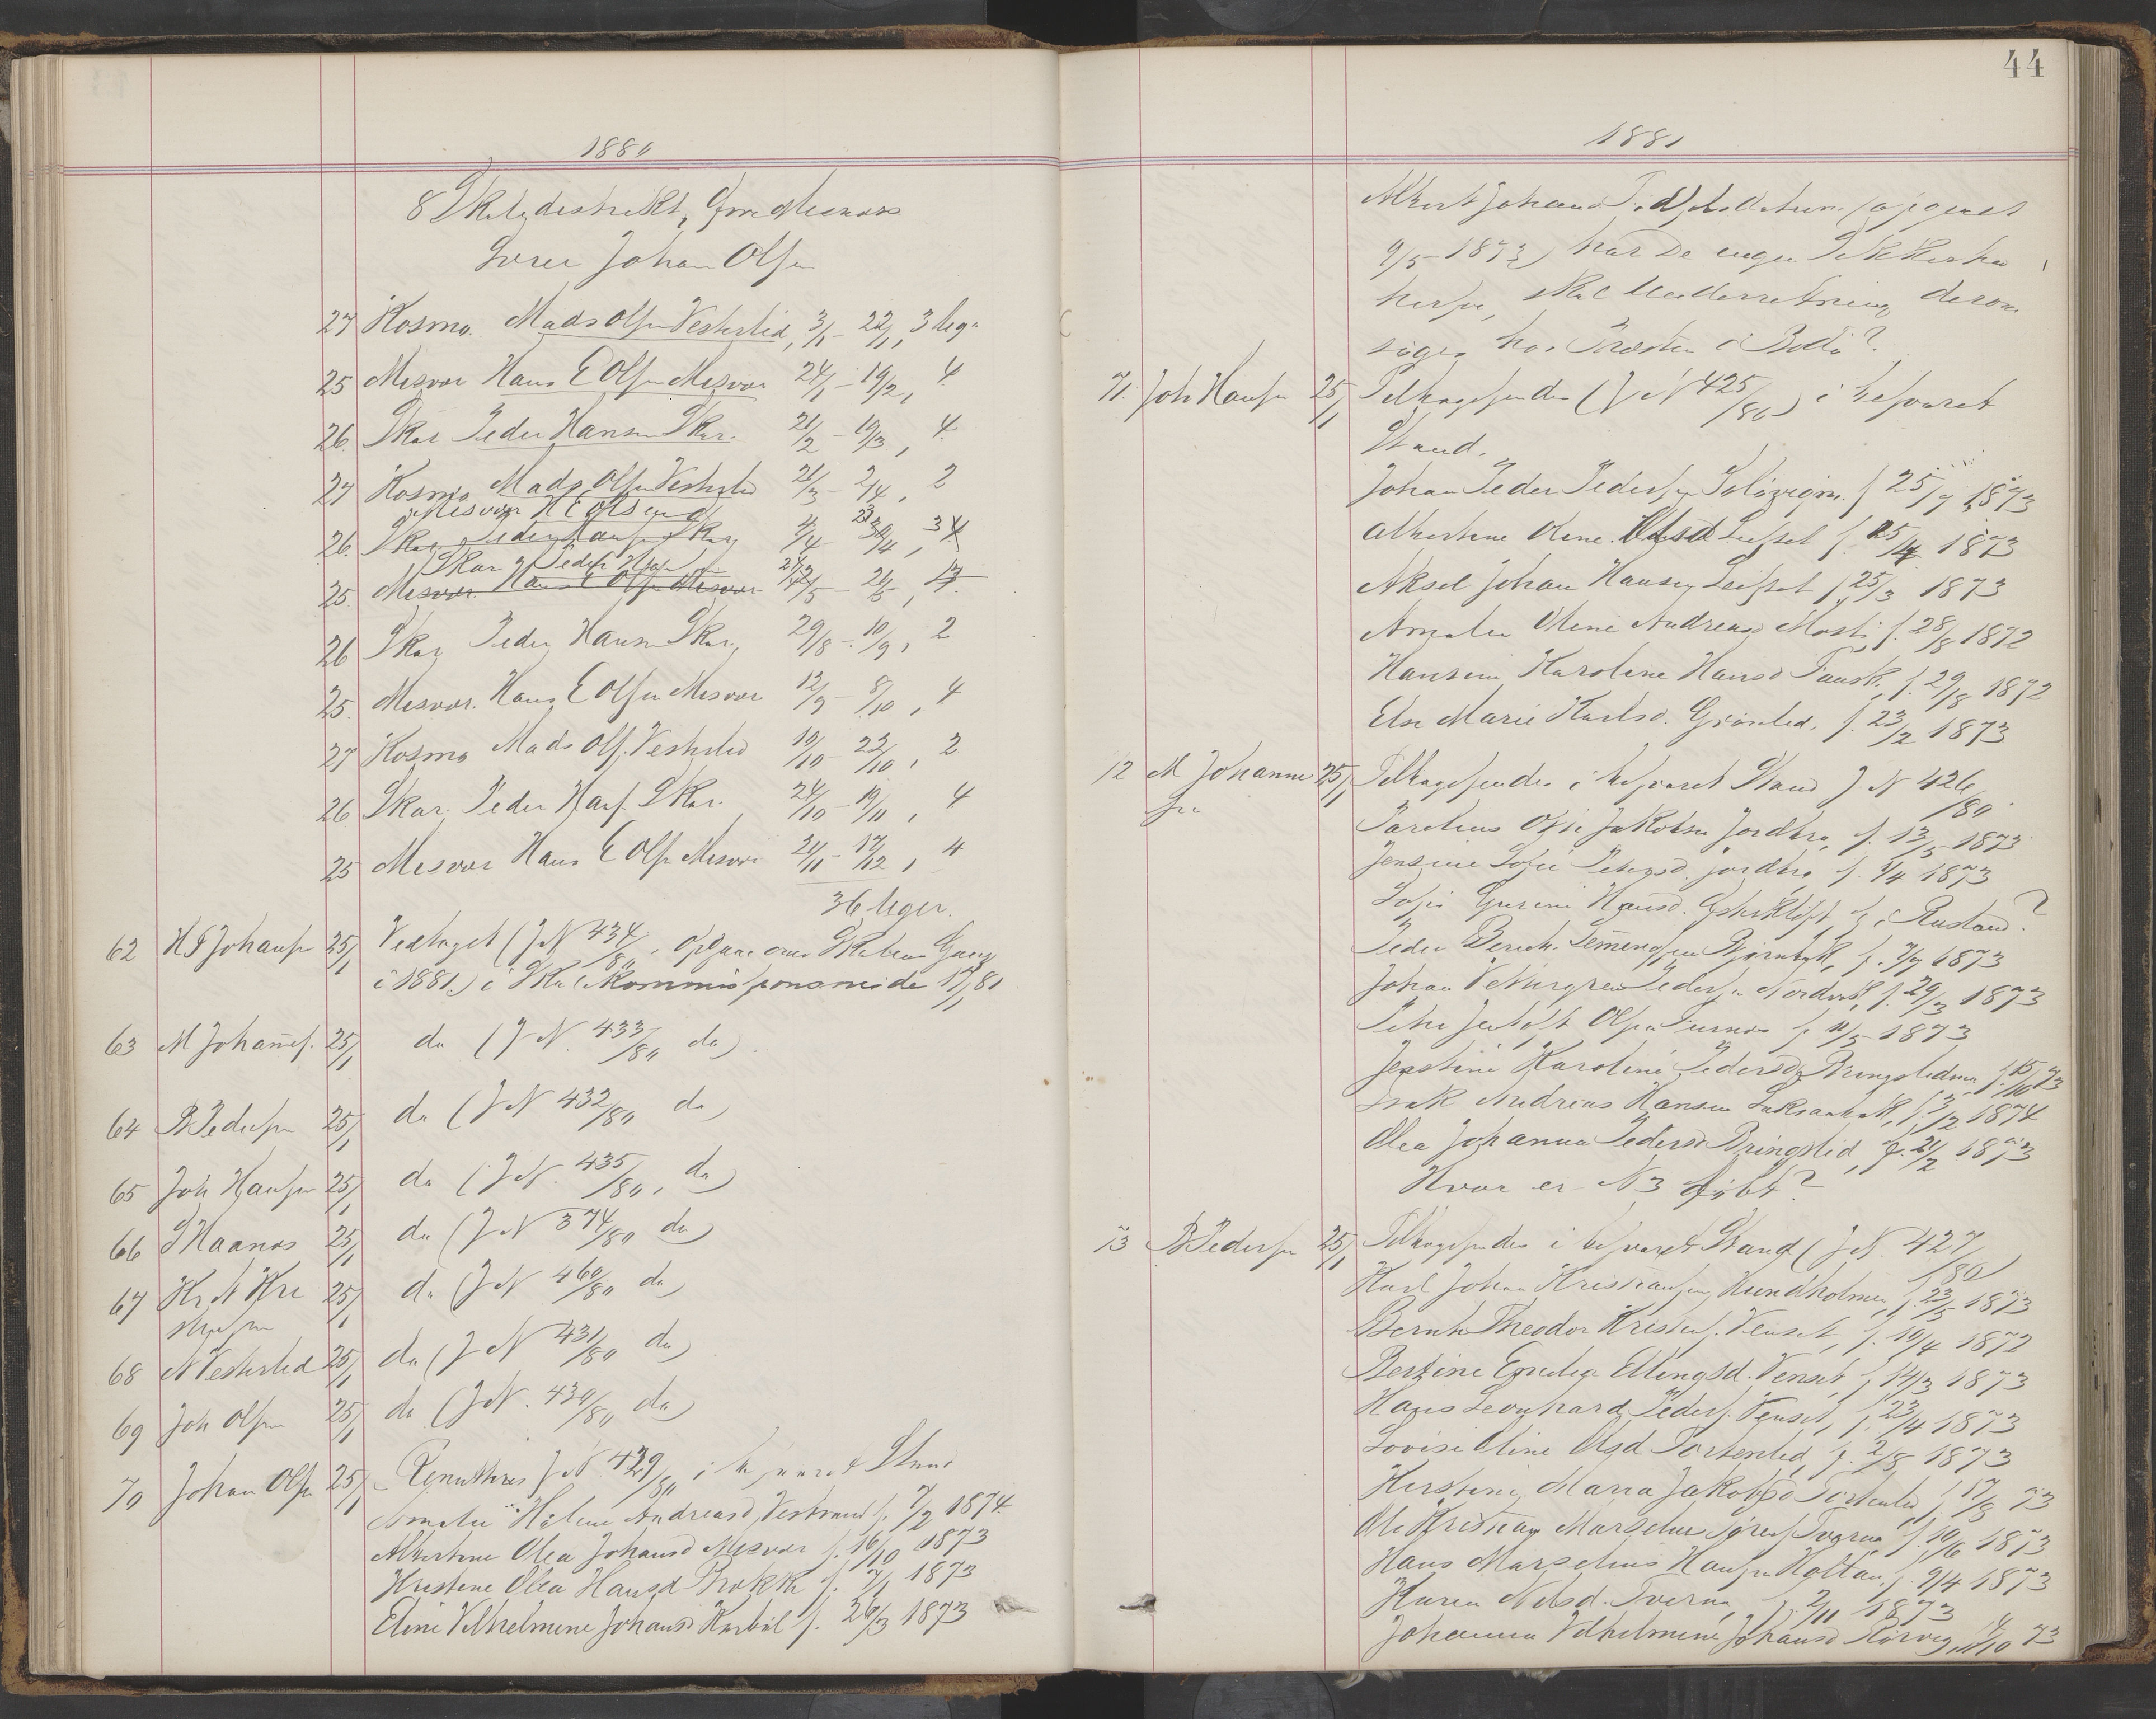 1880
8 Skoledistrikt, Øvre Misvær
Lærer Johan Olsen
27 Kosmo. Mads Olsen Vesterlid, 3/1 - 22/1, 3 Uger
25 Misvær Hans E Olsen Misvær 24/1 - 19/2, 4
26. Skar Peder Hansen Skar. 21/2 - 19/3, 4
27 Kosmo Mads Olsen Vesterlid 21/3 - 2/4, 2
Misvær H E Olsen
26. Skar Peder Hansen Skar 4/4 - /4, 3
Skar Peder Hansen
25 Misvær. Hans E Olsen Misvær /5 - 21/5,
26 Skar Peder Hansen Skar, 29/8 - 10/9, 2
25. Misvær. Hans E Olsen Misvær 12/9 - 8/10, 4
27 Kosmo Mads Ols. Vesterlid 10/10 - 22/10, 2
26. Skar Peder Hans. Skar. 24/10 - 19/11, 4
25 Misvær Hans E Olsen Misvær 21/11 - 17/12, 4
36 Uger.
62 H P Johansen 25/1 Vedtaget (J N 434/80, Opgave over Skolens Gang
i 1881) i Skolekommissionsmøde 17/1 81
63 M Johannes. 25/1 do (J N. 433/80 do).
64 B Pedersen 25/1 do (J N 432/80 do)
65 Joh Hansen 25/1 do (J N. 435/80, do)
66 S Kaanes 25/1 do (J N 374/80 do)
67 Kr. N Kri 25/1 do (J N 460/80 do)
stensen
68 N Vesterlid 25/1 do (J N 431/80 do)
69 Joh Olsen 25/1 do (J N. 430/80 do)
70 Johan Olsen 25/1 J N 429/80 i besvaret Stand
Amalie Haline Andreasd f. 7/2 1874.
Albertine Olea Johansd Misvær f. 16/10 1873
Kristine Olea Hansd f. 7/1 1873
Eline Vilhelmine Johansd Karbøl f. 26/3 1873
44
1881
Albert Johan (opgivet
9/5 - 1873) har De ingen Sikkerhed
herfor, skal Underretning derom
søges hos Præsten i Bodø?
71. Joh Hansen 25/1 Tilbagesendes (J N 425/80) i besvaret
Stand.
Johan Peder Pedersen f 25/7 1873
Albertine Oline Leifset f. /4 1873
Aksel Johan Hansen Leifset f 25/3 1873
Amalie Oline Andreasd Mosti f. 28/8 1872
Hansine Karoline Hansd Fausk. f. 29/8 1872
Else Marie Karlsd. Grønlid, f. 23/2 1873
12 M Johanne 25/1 Tilbagesendes i besvaret Stand J. N 426/80
sen
Parelius Jakobsen Jordbro, f. 13/5 1873
Jensine Sofie Petersd. Jordbro f. 4/4 1873
Sofie Hansd. f i Russland?
Peder Bjørnbak, f. 7/7 1873
Johan Pedersen f. 29/3 1873
Peter Olsen f 11/5 1873
Jensine Karoline Pedersd Bringslidmo f. 15/10 73
Isak Andreas Hansen f. 3/2 1874
Olea Johanna Pedersd Bringslid, f. 21/2 1873
Hvor er N 3 døbt?
13 B Pedersen 25/1 Tilbagesendes i besvaret Stand (J N. 427/80)
Karl Johan Kristiansen Hundholmen f. 23/5 1873
Bernt Theodor Kristens. Venset, f. 10/4 1872
Bertine Emelie Ellingsd. Venset, f 14/3 1873
Hans Leonhard Peders. Venset, f. 23/4 1873
Lovise Oline Olsd Torstenlid, f. 2/8 1873
Kirstine Marra Jakobsd Torstenlid, f 17/8 73
Ole Kristian Marselius f. 10/6 1873
Hans Marselius Hansen f. 9/4 1873
Karen Nilsd. Tveraa f. 2/11 1873
Johanna Vilhelmine Johansd Rørvig /10 73